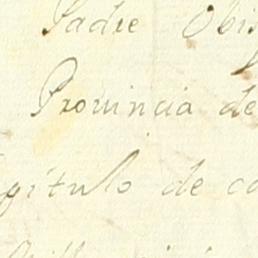 Padre Obis
Prouincia de
gitulo de co